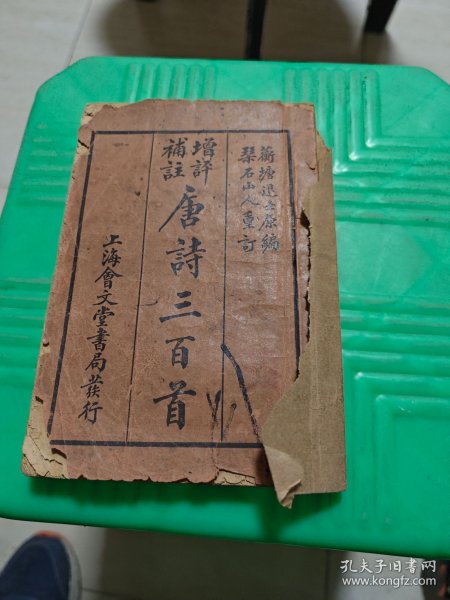 蘅塘退士原編
琹石山人重訂
增評
補註
唐詩三百首
上海會文堂書局蕟行
孔夫子旧书网
www.kongfz.com